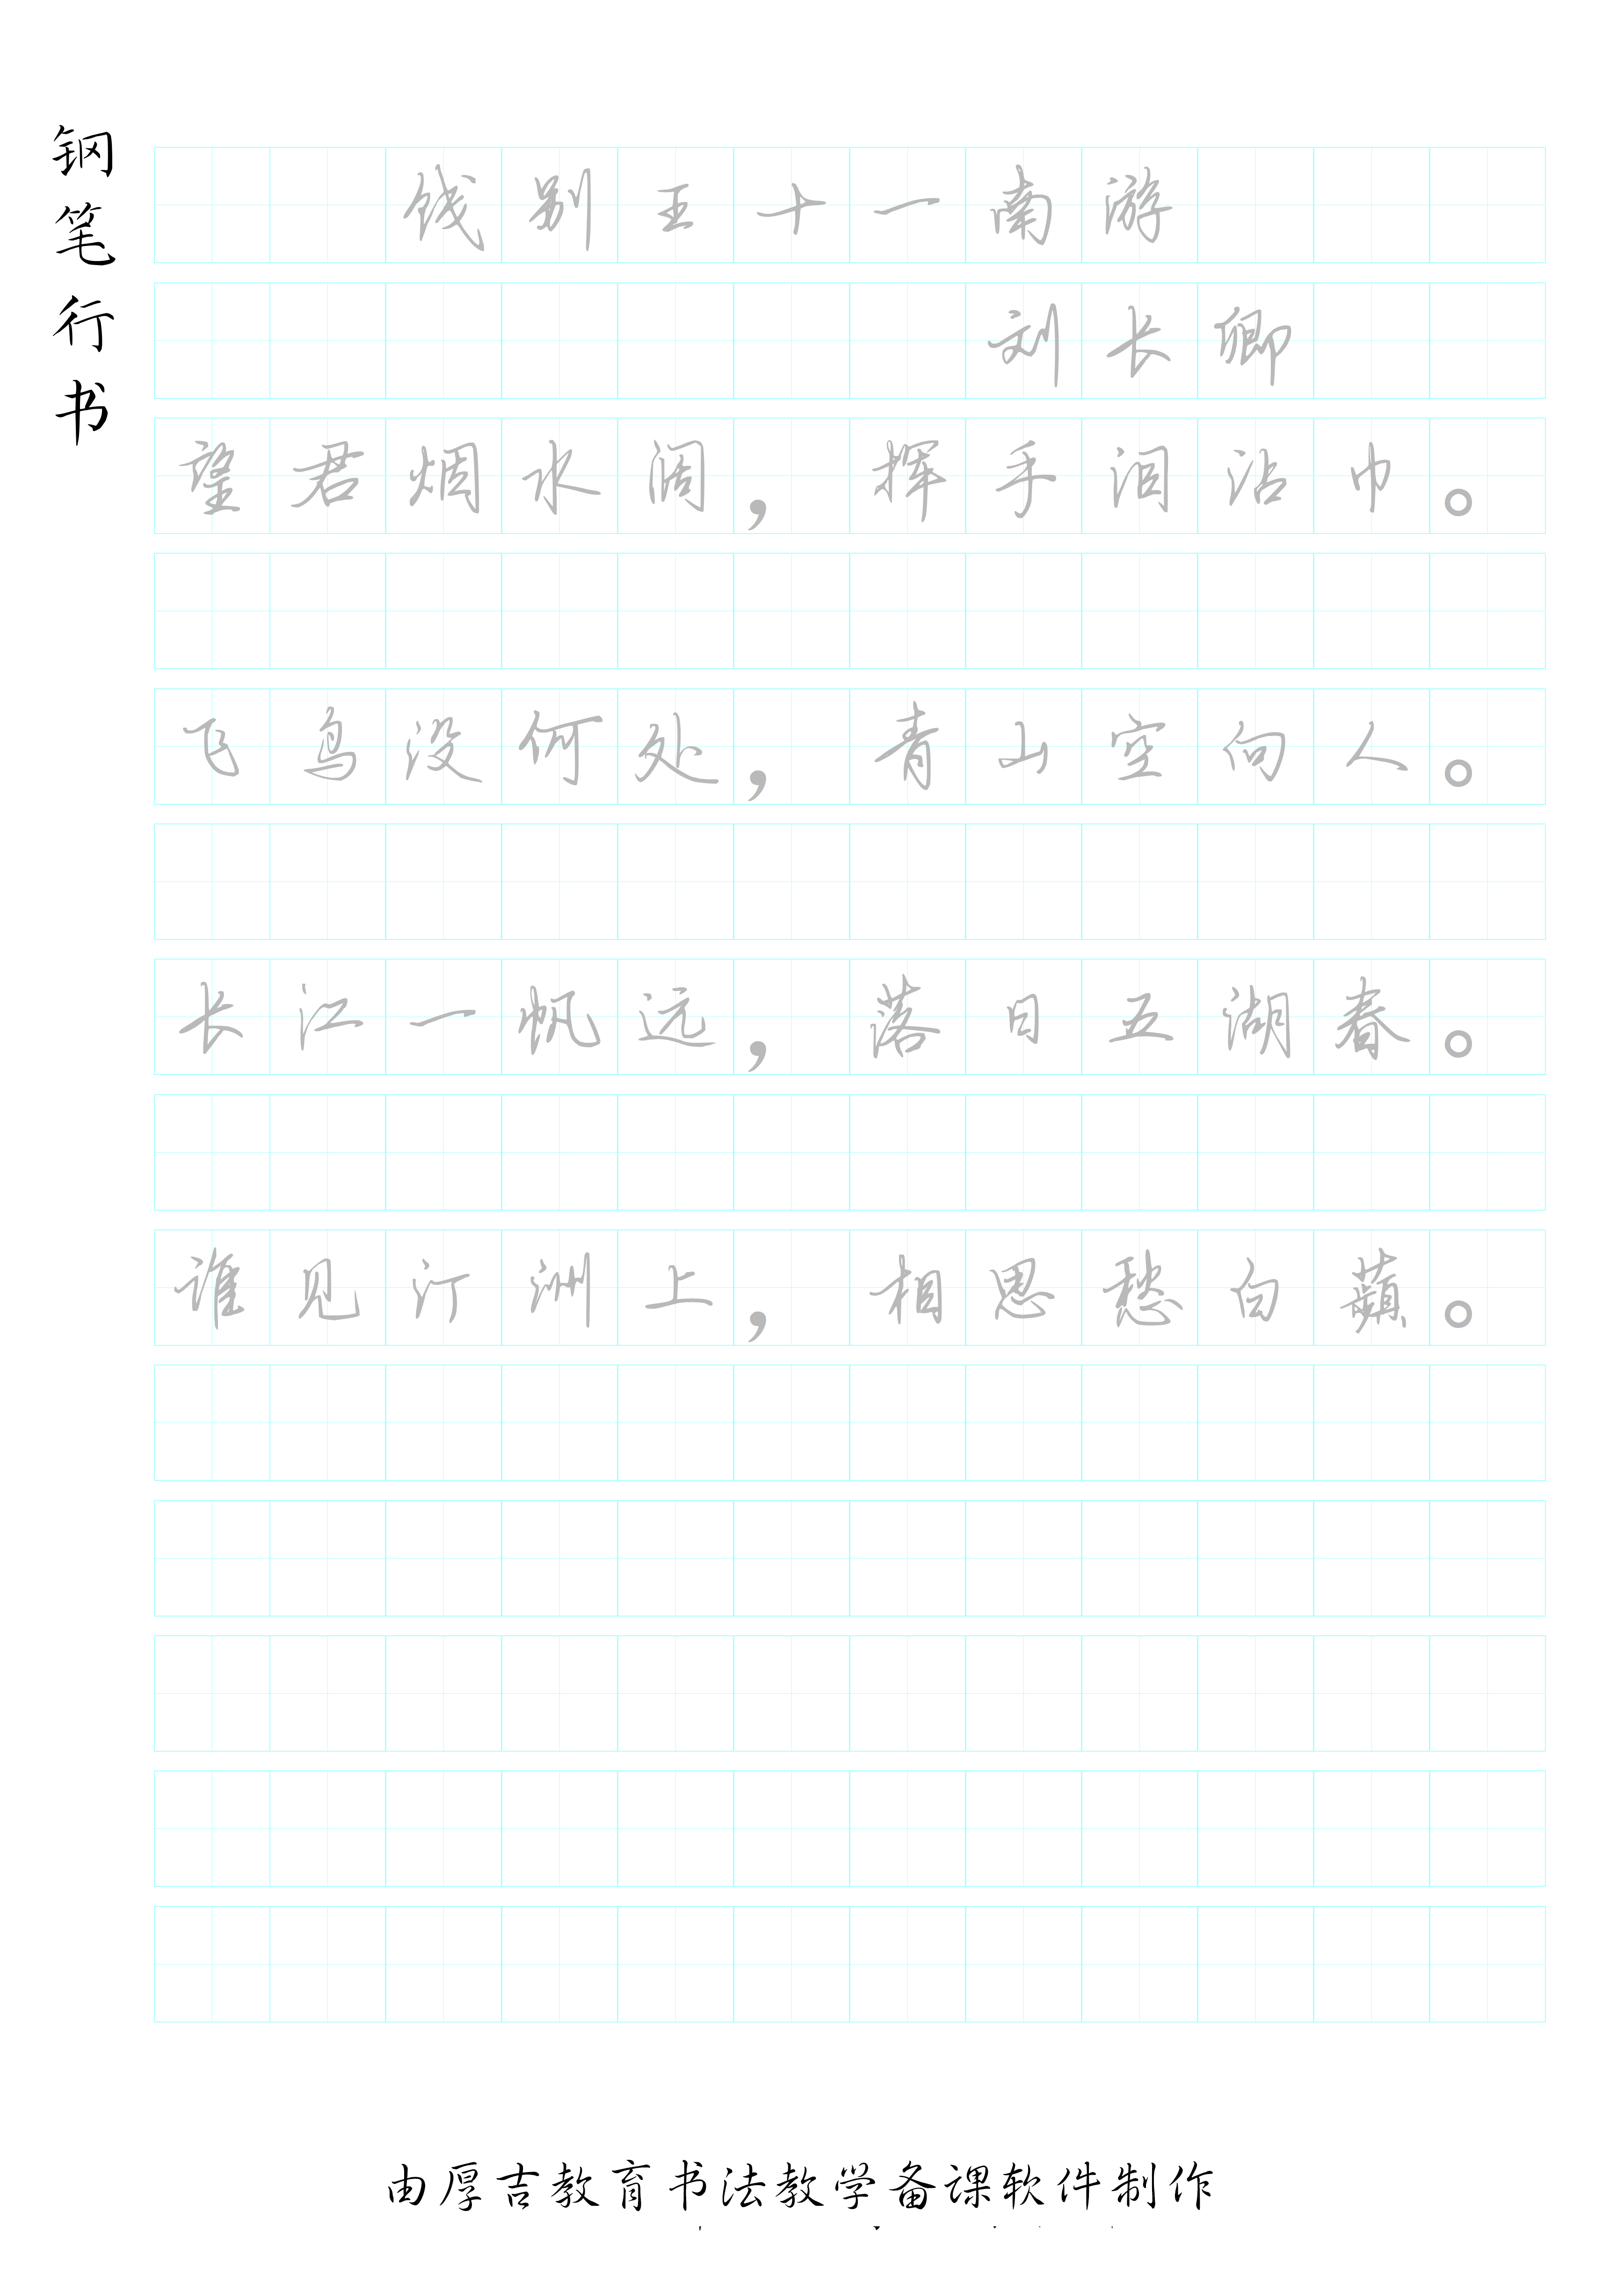 钢笔行书
饯别王十一南游
刘长卿
望君烟水阔，挥手泪沾巾。
飞鸟没何处，青山空向人。
长江一帆远，落日五湖春。
谁见汀洲上，相思愁白蘋。
由厚吉教育书法教学备课软件制作